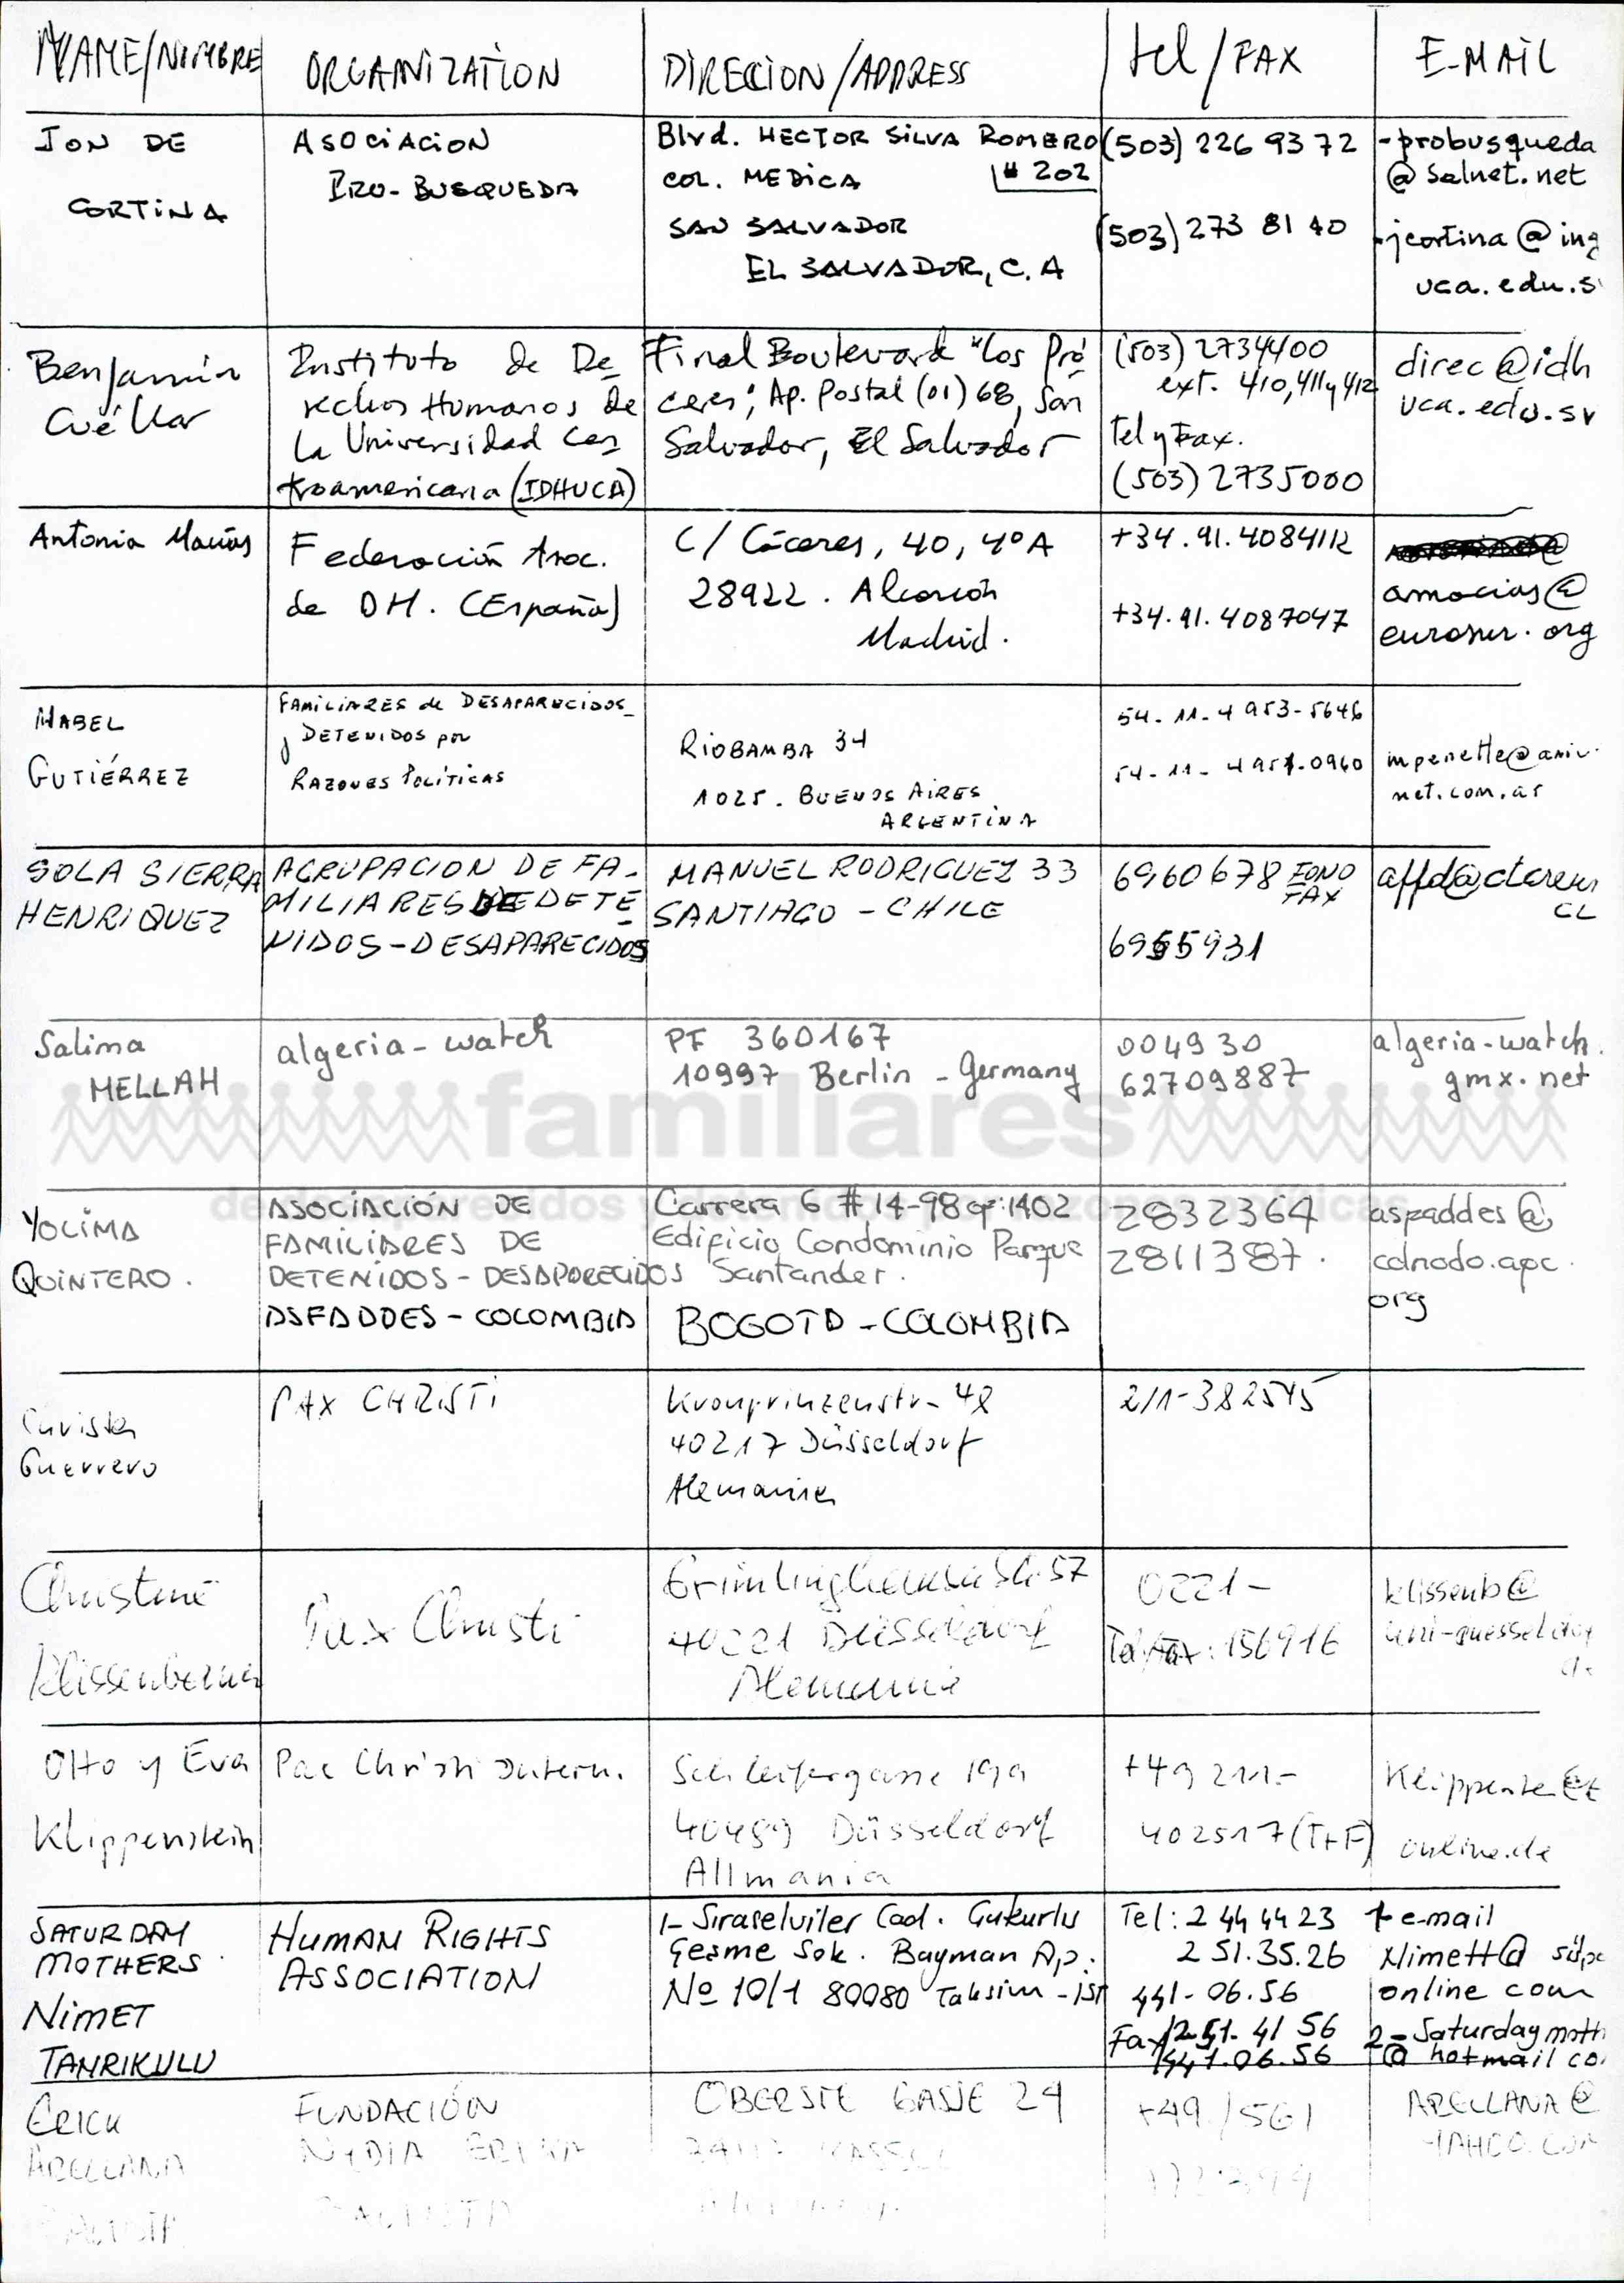 NAME/NOMBRE
ORGANIZATION
DIRECCION/ADDRESS
tel/FAX
E-MAIL
JON DE
CORTINA
ASOCIACION
PRO-BUSQUEDA
Blvd. HECTOR SILVA ROMERO
# 202
COL. MEDICA
SAN SALVADOR
EL SALVADOR, C.A
(503) 226 93 72
(503) 273 81 40
- probusqueda
@ salnet.net
- jcortina @ ing
uca.edu.s
Benjamín
Cuéllar
Instituto de De
rechos Humanos de
la Universidad Cen
troamericana (IDHUCA)
Final Boulevard "Los Pró
ceres", Ap. Postal (01) 68, San
Salvador, El Salvador
(503) 2734400
ext. 410, 411 y 412
tel y Fax.
(503) 2735000
direc@idh
uca.edu.sv
Antonia Macías
Federación Asoc.
de DH. (España)
C/ Cáceres, 40, 4º A
28922. Alcorcón
Madrid.
+34.91.4084112
+34.91.4087047
amacias@
eurosur.org
MABEL
GUTIÉRREZ
FAMILIARES de DESAPARECIDOS
y DETENIDOS por
RAZONES POLÍTICAS
RIOBAMBA 34
1025. BUENOS AIRES
ARGENTINA
54-11-4953-5646
54-11-4951-0960
net.com.ar
SOLA SIERRA
HENRIQUEZ
AGRUPACION DE FA-
MILIARES DE DETE-
NIDOS-DESAPARECIDOS
MANUEL RODRIGUEZ 33
SANTIAGO - CHILE
6960678 FONO
FAX
6955931
CL
Salima
MELLAH
algeria-watch
PF 360167
10997 Berlin - Germany
004930
62709887
algeria-watch
gmx.net
familiares
de desaparecidos y detenidos por razones políticas
YOLIMA
QUINTERO.
ASOCIACIÓN DE
FAMILIARES DE
DETENIDOS-DESAPARECIDOS
ASFADDES - COLOMBIA
Carrera 6 # 14-98 of: 1402
Edificio Condominio Parque
Santander.
BOGOTA - COLOMBIA
2832364
2811387.
asfaddes@
colnodo.apc.
org
Christa
Guerrero
PAX CHRISTI
Kronprinzenstr.
40217 Düsseldorf
Alemania
211-382545
Christine
Klissenbauer
Pax Christi
40221 Düsseldorf
Alemania
0221-
Tel/Fax: 156916
klissenb@
Otto y Eva
Klippenstein
Pax Christi Intern.
Schleifergasse 19a
40489 Düsseldorf
Allmania
+49 211-
402517 (T+F)
online.de
SATURDAY
MOTHERS
NIMET
TANRIKULU
HUMAN RIGHTS
ASSOCIATION
1- Sıraselviler Cad. Çukurlu
Çeşme Sok. Bayman Ap.
No 10/1 80080 Taksim-İST
Tel: 2 44 44 23
2 51.35.26
441-06.56
Fax 251-41 56
441.06.56
1- e-mail
Nimett@ süpe
online com
2- Saturdaymoth
@ hotmail co
ERICK
ARELLANA
BAUTISTA
FUNDACIÓN
NYDIA ERIKA
BAUTISTA
OBERSTE GASSE 24
KASSEL
+49/561
ARELLANA@
YAHOO.COM